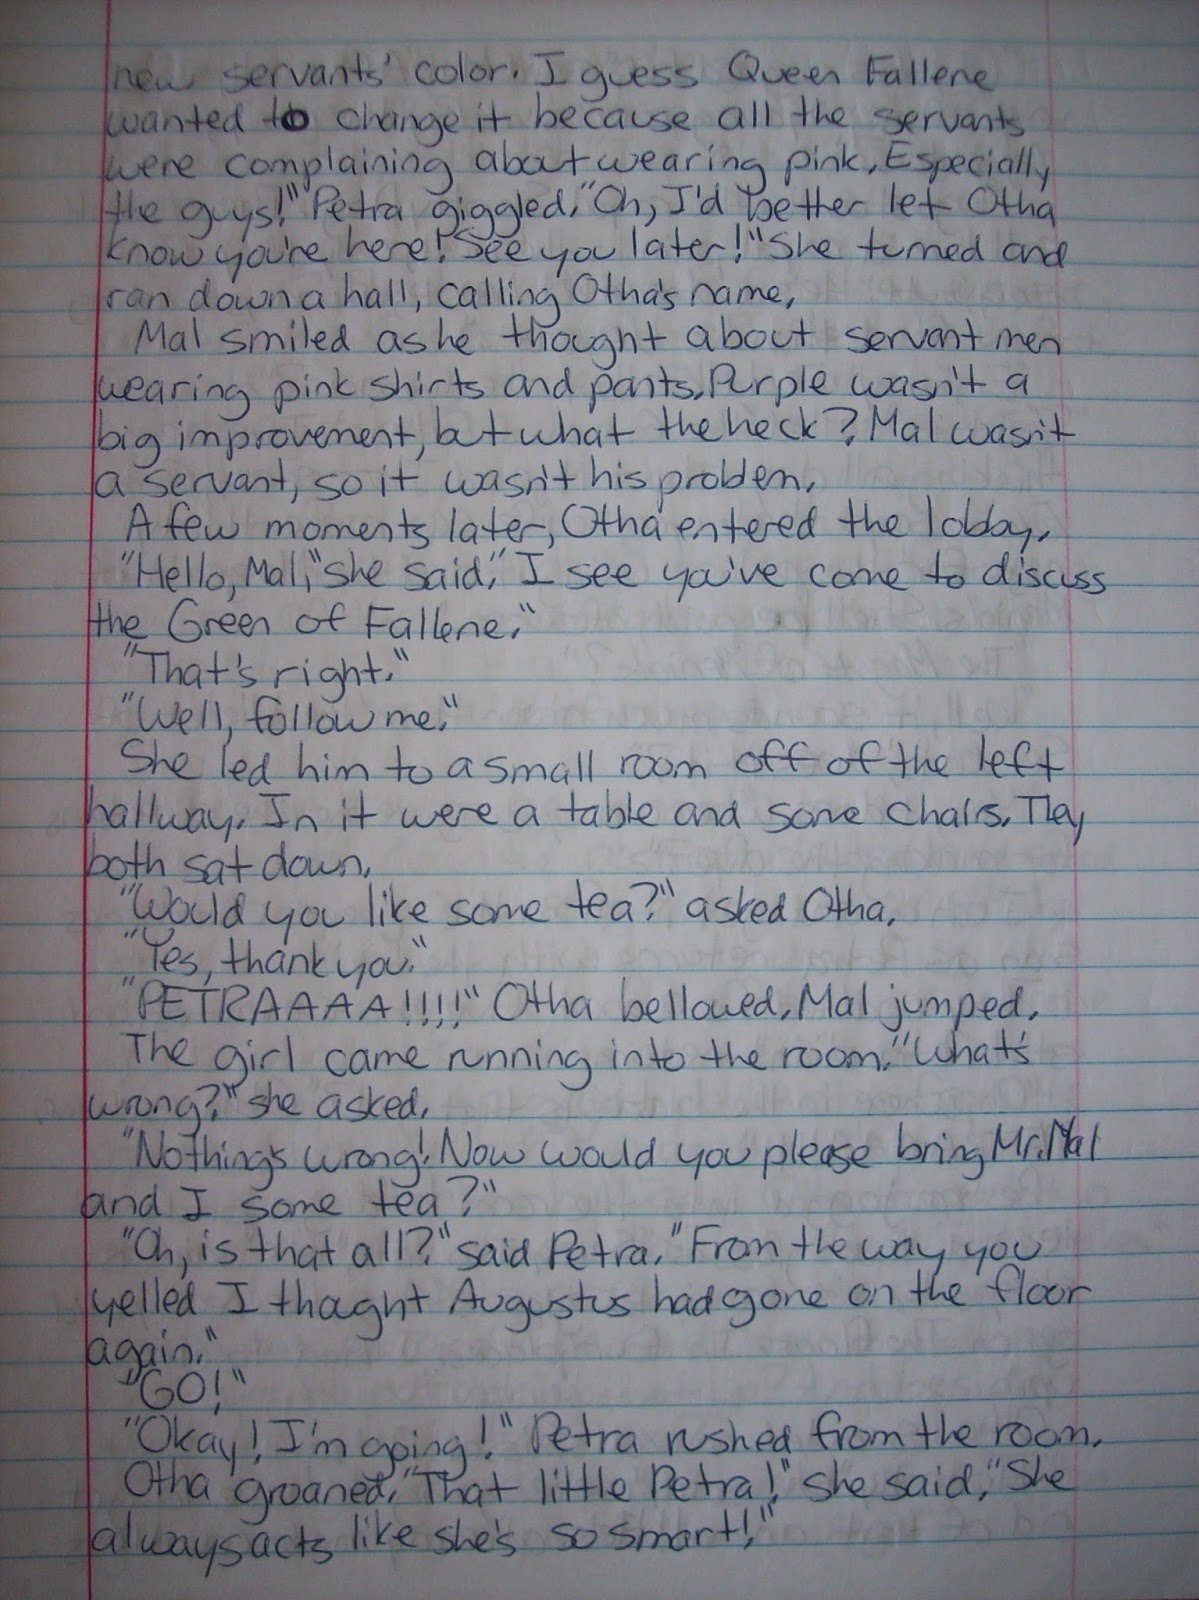 new servants' color. I guess Queen Fallene
wanted to change it because all the servants
were complaining about wearing pink. Especially
the guys!" Petra giggled. "Oh, I'd better let Otha
know you're here! See you later!" She turned and
ran down a hall, calling Otha's name.
Mal smiled as he thought about servant men
wearing pink shirts and pants. Purple wasn't a
big improvement, but what the heck? Mal wasn't
a servant, so it wasn't his problem.
A few moments later, Otha entered the lobby.
"Hello, Mal," she said. "I see you've come to discuss
the Green of Fallene."
"That's right."
"Well, follow me."
She led him to a small room off of the left
hallway. In it were a table and some chairs. They
both sat down.
"Would you like some tea?" asked Otha.
"Yes, thank you."
"PETRAAAA!!!!" Otha bellowed. Mal jumped.
The girl came running into the room. "What's
wrong?" she asked.
"Nothing's wrong! Now would you please bring Mr. Mal
and I some tea?"
"Oh, is that all?" said Petra. "From the way you
yelled I thought Augustus had gone on the floor
again."
"GO!"
"Okay! I'm going!" Petra rushed from the room.
Otha groaned. "That little Petra!" she said, "She
always acts like she's so smart!"